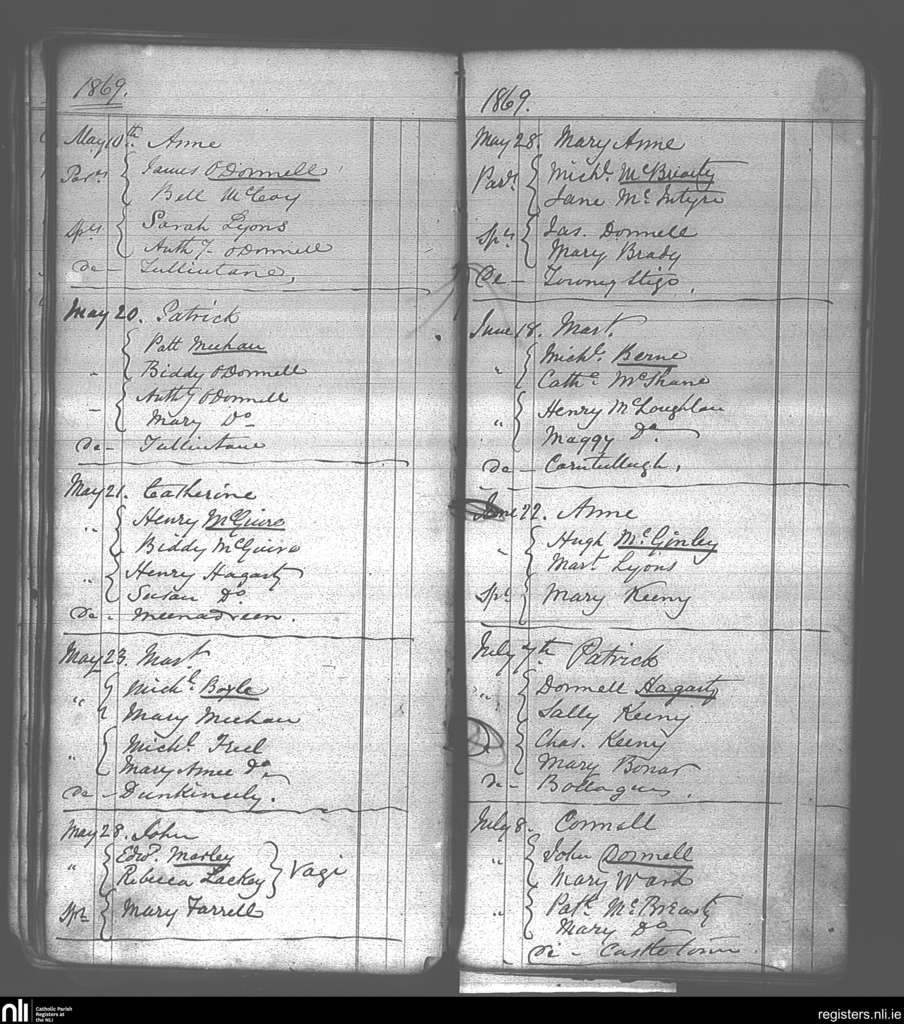 1869.
May 10th. Anne
Par.ts James O Donnell
Bell McCoy
Sp.rs Sarah Lyons
Anth.y O Donnell
de - Tullintane,
May 20. Patrick
Patt Meehan
Biddy O Donnell
Anth.y O Donnell
Mary Do
de - Tullintane
May 21. Catherine
" Henry McGuire
Biddy McGuire
" Henry Hagarty
Susan Do
de - Meenadreen.
May 23. Mart.
" Mich.l Boyle
Mary Meehan
" Mich.l Friel
Mary Anne Do
de - Dunkineely.
May 28. John
" Edwd. Marley
Rebecca Lackey } Vagi
Spr. Mary Farrell
1869.
May 28. Mary Anne
Par.ts Mich.l McBrearty
Jane McIntyre
Sp.rs Jas. Donnell
Mary Brady
De - Towny Sligo.
June 18. Mart.
" Mich.l Berne
Cath.e McShane
" Henry McLoughlan
Maggy Do
de - Corntullagh.
June 22. Anne
" Hugh McGinley
Mart. Lyons
Spr. Mary Keeny
July 7th Patrick
" Donnell Hagarty
Sally Keeny
Chas. Keeny
Mary Bonar
de -
July 8. Connell
" John Donnell
Mary Ward
" Patk. McBrearty
Mary Do
de - Castletown
nli
Catholic Parish
Registers at
the NLI
registers.nli.ie